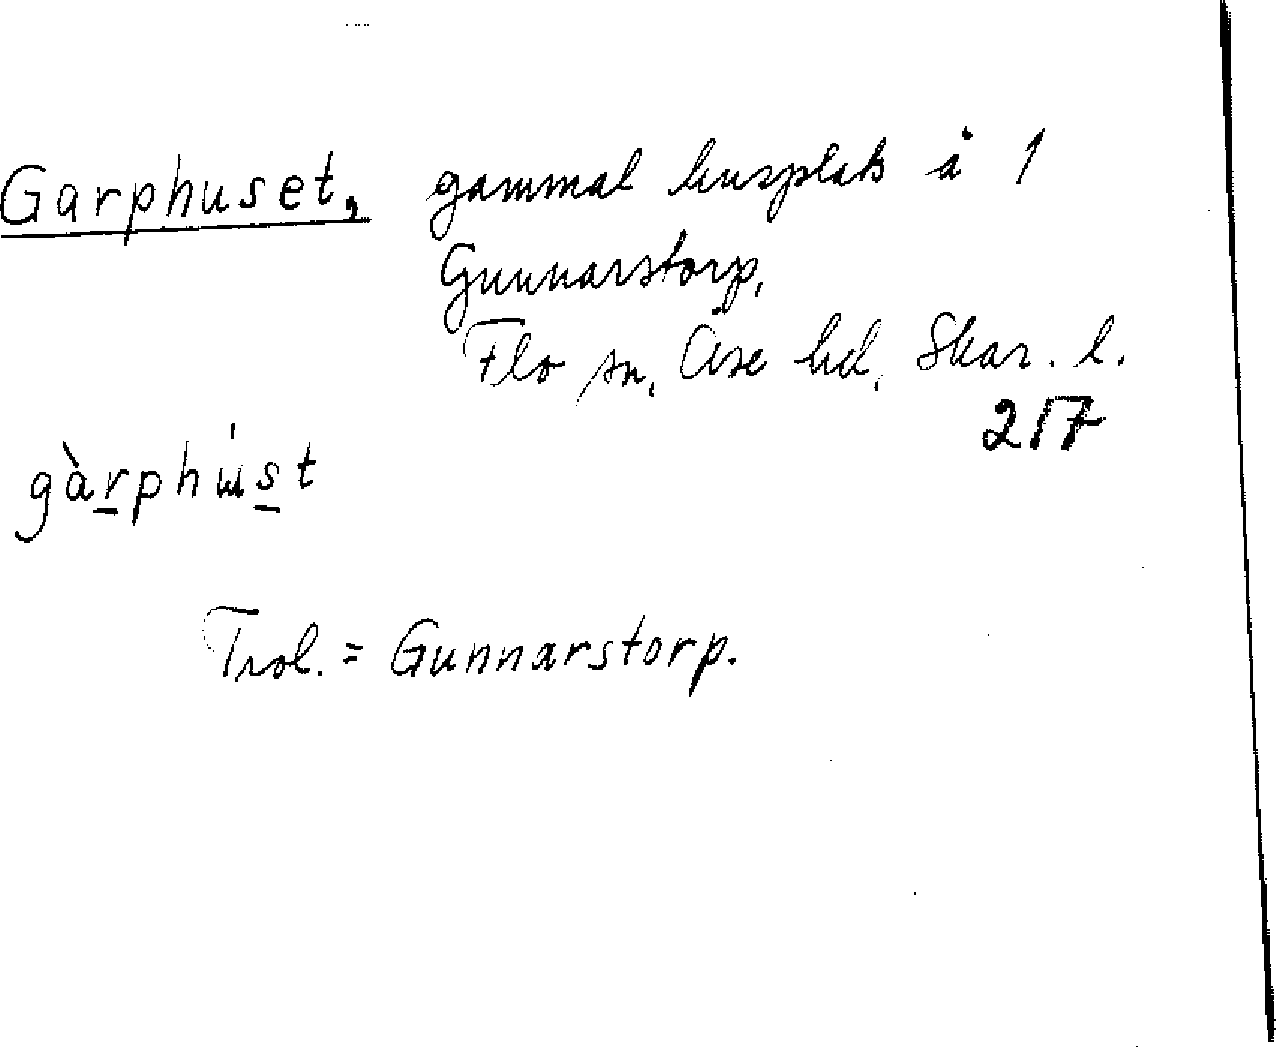 Garphuset, gammal husplats å 1
Gunnarstorp,
Flo sn, Åse hd, Skar. l.
217
gàrphu̍st
Trol. = Gunnarstorp.